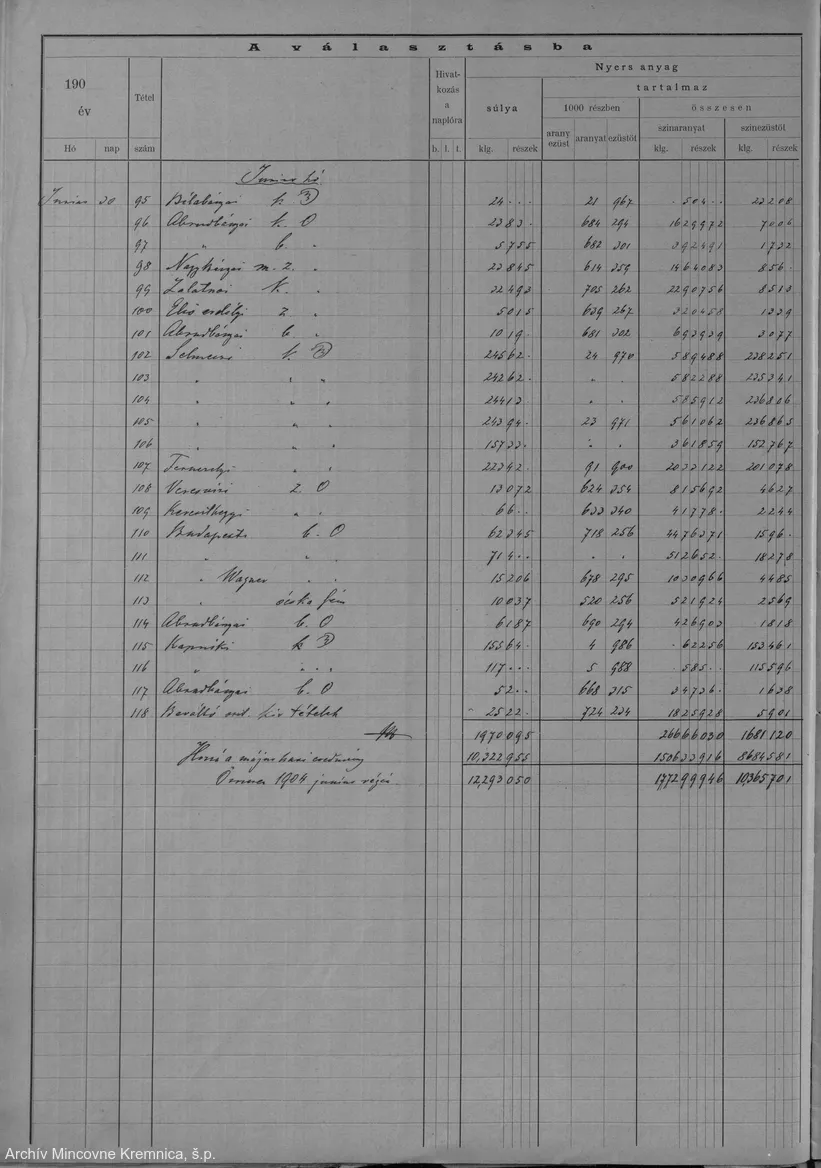 A választásba
190
év
Hó nap
Tétel szám
Hivatkozás a naplóra
b. l. t.
Nyers anyag
súlya
klg. részek
tartalmaz
1000 részben
arany ezüst aranyat ezüstöt
összesen
színaranyat
klg. részek
színezüstöt
klg. részek
Junius hó
Junius 30 95 k 24 · · · 21 967 · 504 · · 23208
96 Abrudbányai k. O 2383 · 684 294 1629972 7006
97 " b. " 5755 682 301 392491 1732
98 Nagybányai m. z. " 23845 614 359 1464083 856 ·
99 Zalatnai k. " 32493 705 262 2290756 8513
100 Első erdélyi z " 5015 639 267 320458 1339
101 Abrudbányai b " 1019 · 681 302 693939 3077
102 k. 24562 · 24 970 589488 238251
103 " " " 24262 · " " 582288 235341
104 " " " 24413 " " 585912 236806
105 " " " 24394 · 23 971 561062 236865
106 " " " 15733 · " " 361859 152767
107 " " 22342 · 91 900 2033122 201078
108 Verespataki z. O 13072 624 354 815692 4627
109 " " 66 · · 633 340 41778 · 2244
110 Budapesti b. O 62345 718 256 4476371 1596 ·
111 " " " 714 · · " " 512652 · 18278
112 " Wagner " " 15206 678 295 1030966 4485
113 " ócska fém 10037 520 256 521924 2569
114 Abrudbányai b. O 6187 690 294 426903 1818
115 Kapniki k 15564 · 4 986 · 62256 153461
116 " " " 117 · · · 5 988 · 585 · · 115596
117 Abrudbányai b. O 52 · · 668 315 34736 · 1638
118 Beváltó tételek 2522 · 724 234 1825928 5901
1970095 26666030 1681120
Hozzá a május havi eredmény 10,322955 150633916 8684581
Összesen 1904 junius végéig 12,293050 177299946 10365701
Archív Mincovne Kremnica, š.p.